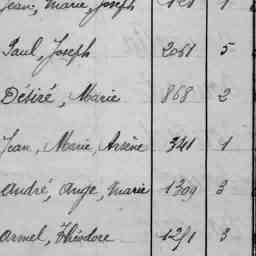 Jean, Marie, Joseph
Paul, Joseph 2061 5
Désiré, Marie 868 2
Jean, Marie, Arsène 341 1
André, Ange, Marie 1309 3
Armel, Théodore 3